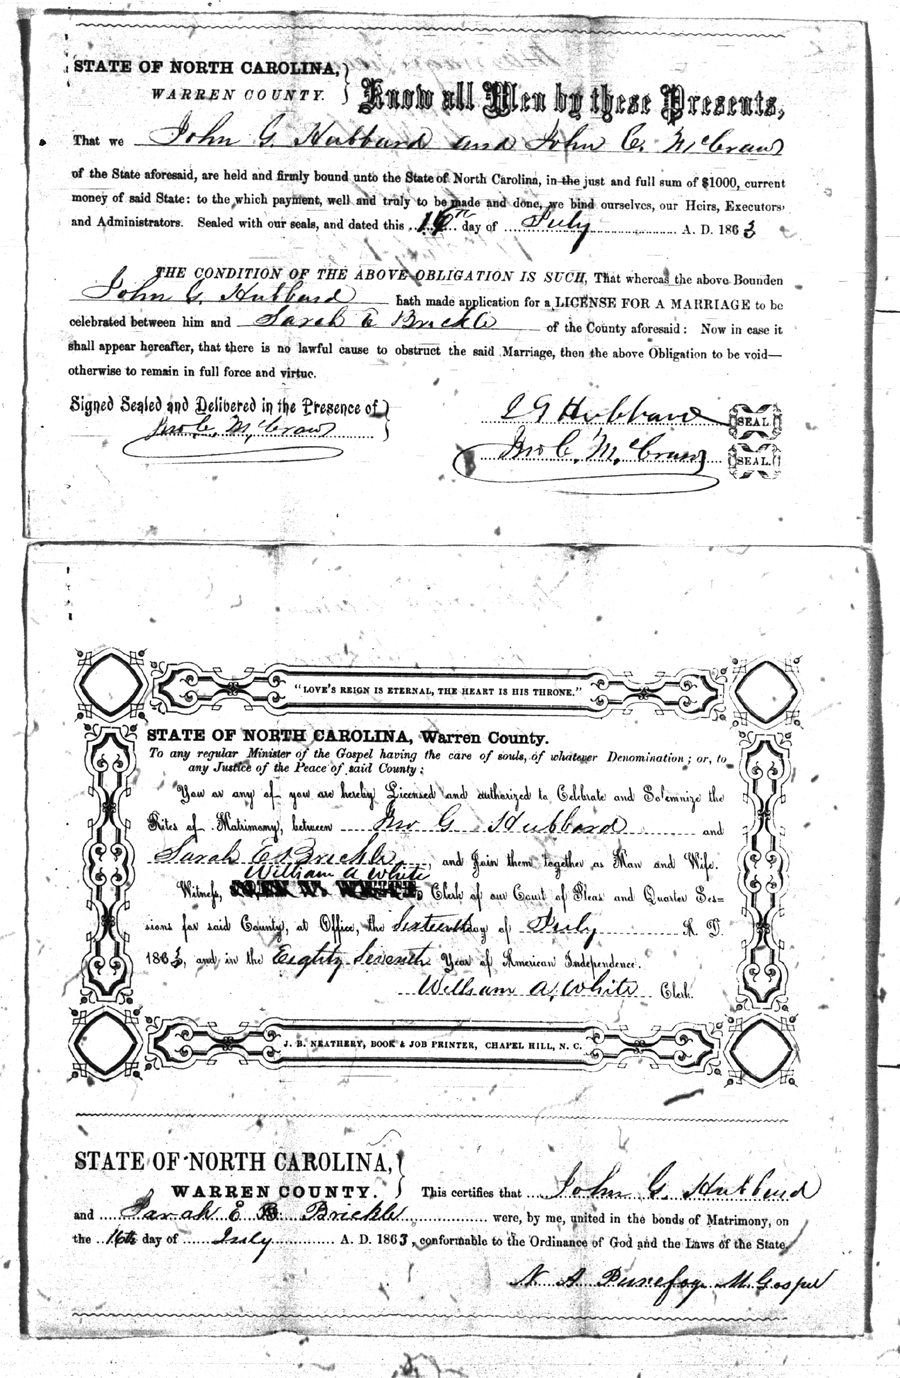 STATE OF NORTH CAROLINA,
WARREN COUNTY.
Know all Men by these Presents,
That we John G. Hubbard and John C. McCraw
of the State aforesaid, are held and firmly bound unto the State of North Carolina, in the just and full sum of $1000, current
money of said State: to the which payment, well and truly to be made and done, we bind ourselves, our Heirs, Executors,
and Administrators. Sealed with our seals, and dated this 16th day of July A. D. 1863
THE CONDITION OF THE ABOVE OBLIGATION IS SUCH, That whereas the above Bounden
John G. Hubbard hath made application for a LICENSE FOR A MARRIAGE to be
celebrated between him and Sarah E Brickle of the County aforesaid: Now in case it
shall appear hereafter, that there is no lawful cause to obstruct the said Marriage, then the above Obligation to be void—
otherwise to remain in full force and virtue.
Signed Sealed and Delivered in the Presence of
Jno. C. McCraw
J G Hubbard SEAL.
Jno C. McCraw SEAL.
"LOVE'S REIGN IS ETERNAL, THE HEART IS HIS THRONE."
STATE OF NORTH CAROLINA, Warren County.
To any regular Minister of the Gospel having the care of souls, of whatever Denomination; or, to
any Justice of the Peace of said County:
You or any of you are hereby Licensed and authorized to Celebrate and Solemnize the
Rites of Matrimony, between Jno G Hubbard and
Sarah E Brickle, and Join them together as Man and Wife.
William A White
Witness, Clerk of our Court of Pleas and Quarter Ses=
sions for said County, at Office, the Sixteenth day of July A. D.
1863, and in the Eighty Seventh Year of American Independence.
William A. White Clerk.
J. B. NEATHERY, BOOK & JOB PRINTER, CHAPEL HILL, N. C.
STATE OF NORTH CAROLINA,
WARREN COUNTY.
This certifies that John G. Hubbard
and Sarah E B Brickle were, by me, united in the bonds of Matrimony, on
the 16th day of July A. D. 1863, conformable to the Ordinance of God and the Laws of the State.
N. A Purefoy M. Gospel